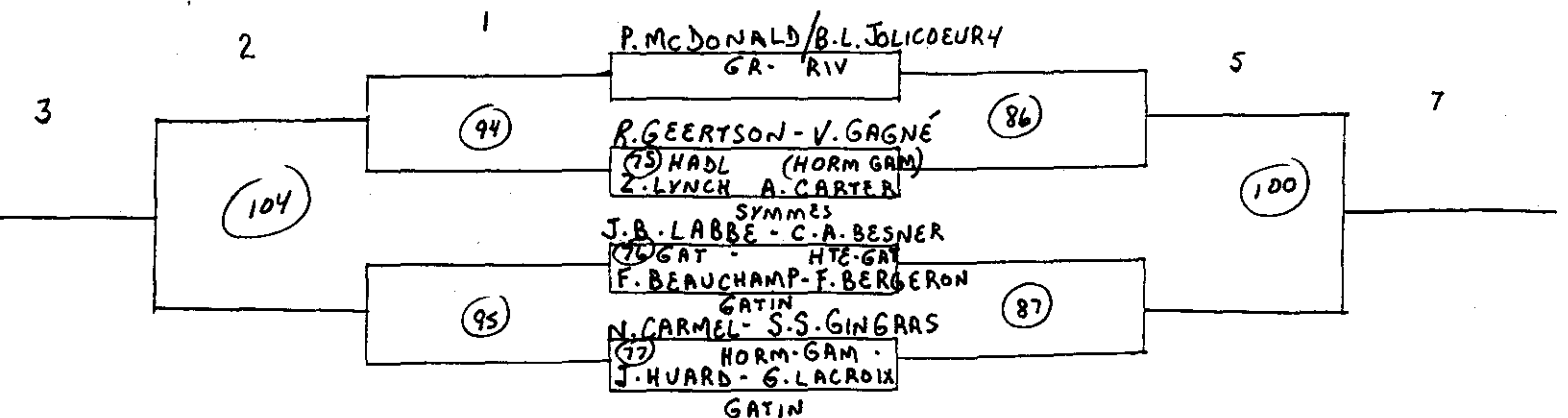 1
2
3
5
7
P. McDONALD/B.L. JOLICOEUR 4
GR- RIV
94
86
R. GEERTSON - V. GAGNÉ
75 HADL (HORM GAM)
Z. LYNCH A. CARTER
SYMMES
104
100
J.B. LABBE - C.A. BESNER
76 GAT - HTE-GAT
F. BEAUCHAMP - F. BERGERON
GATIN
95
87
N. CARMEL - S.S. GINGRAS
77 HORM-GAM.
J. HUARD - G. LACROIX
GATIN